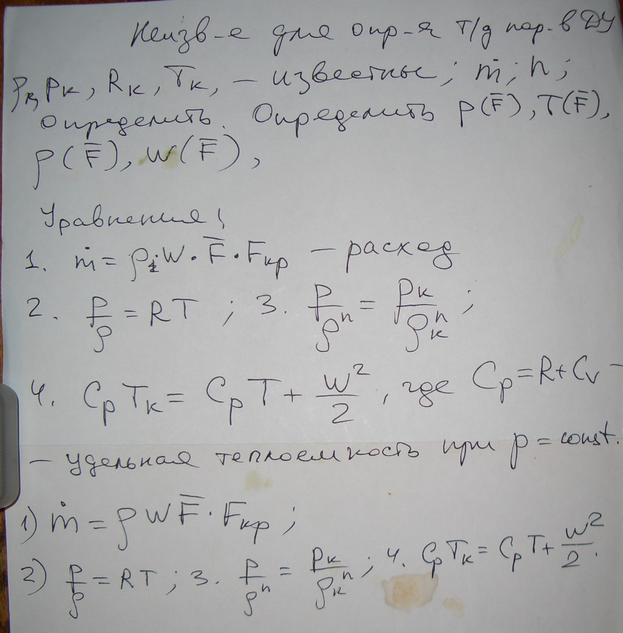 Неизв-е для опр-я т/д пар. в ДУ
ρк, pк, Rк, Tк, – известные; ṁ; n;
Определить. Определить p(F̄), T(F̄),
ρ(F̄), w(F̄),
Уравнения:
1. ṁ = ρ₁W·F̄·Fкр – расход
2. p/ρ = RT ; 3. p/ρⁿ = pк/ρкⁿ ;
4. CpTк = CpT + w²/2, где Cp = R + Cv –
– удельная теплоемкость при p = const.
1) ṁ = ρWF̄·Fкр;
2) p/ρ = RT ; 3. p/ρⁿ = pк/ρкⁿ ; 4. CpTк = CpT + w²/2.